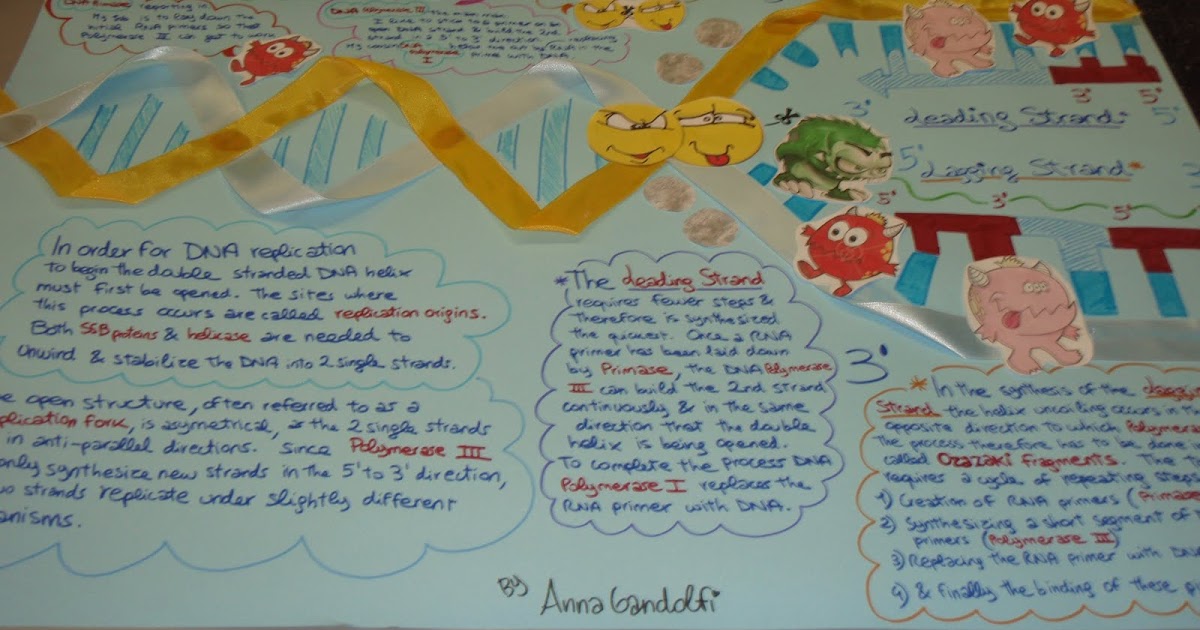 reporting in
My job is to lay down the
initial RNA primers so that
Polymerase III can get to work
DNA Polymerase III
I
3'
5'
3'
Leading Strand*
5'
5'
Lagging Strand*
5'
3'
5'
In order for DNA replication
to begin the double stranded DNA helix
must first be opened. The sites where
this process occurs are called replication origins.
Both SSB proteins & helicase are needed to
unwind & stabilize the DNA into 2 single strands.
e open structure, often referred to as a
plication fork, is asymetrical, as the 2 single strands
in anti-parallel directions. Since Polymerase III
only synthesize new strands in the 5' to 3' direction,
wo strands replicate under slightly different
anisms.
*The Leading Strand
requires fewer steps &
therefore is synthesized
the quickest. Once a RNA
primer has been laid down
by Primase, the DNA Polymerase
III can build the 2nd strand
continuously & in the same
direction that the double
helix is being opened.
To complete the process DNA
Polymerase I replaces the
RNA primer with DNA.
3'
* In the synthesis of the Laggin
Strand the helix uncoiling occurs in th
opposite direction to which Polymeras
The process therefore has to be done i
called Ozazaki fragments. The
requires a cycle of repeating steps
1) Creation of RNA primers (Primase
2) Synthesizing a short segment of
primers (Polymerase III)
3) Replacing the RNA primer with DNA
4) & finally the binding of these
By Anna Gandolfi